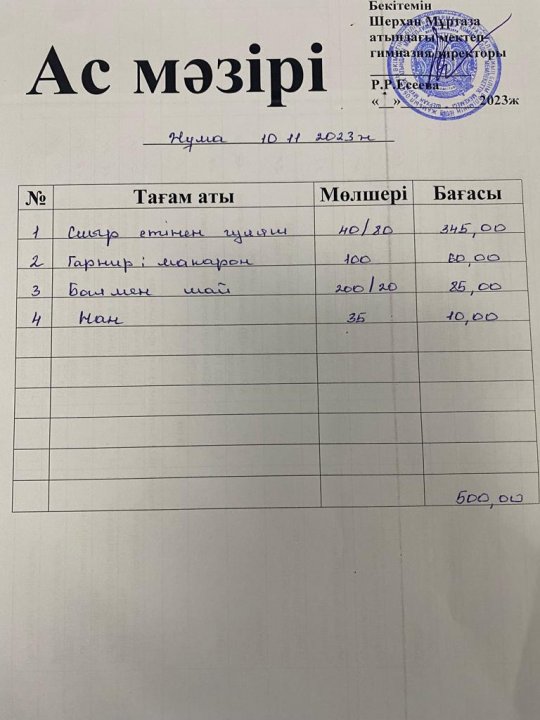 Бекітемін
Шерхан Мұртаза
атындағы мектеп-
гимназия директоры
Р.Р.Есеева
«__»__________2023ж
Ас мәзірі
Жұма 10 11 2023 ж
№ Тағам аты Мөлшері Бағасы
1 Сиыр етінен гуляш 40/80 345,00
2 Гарнир: макарон 100 60,00
3 Балмен шай 200/20 85,00
4 Нан 35 10,00
500,00